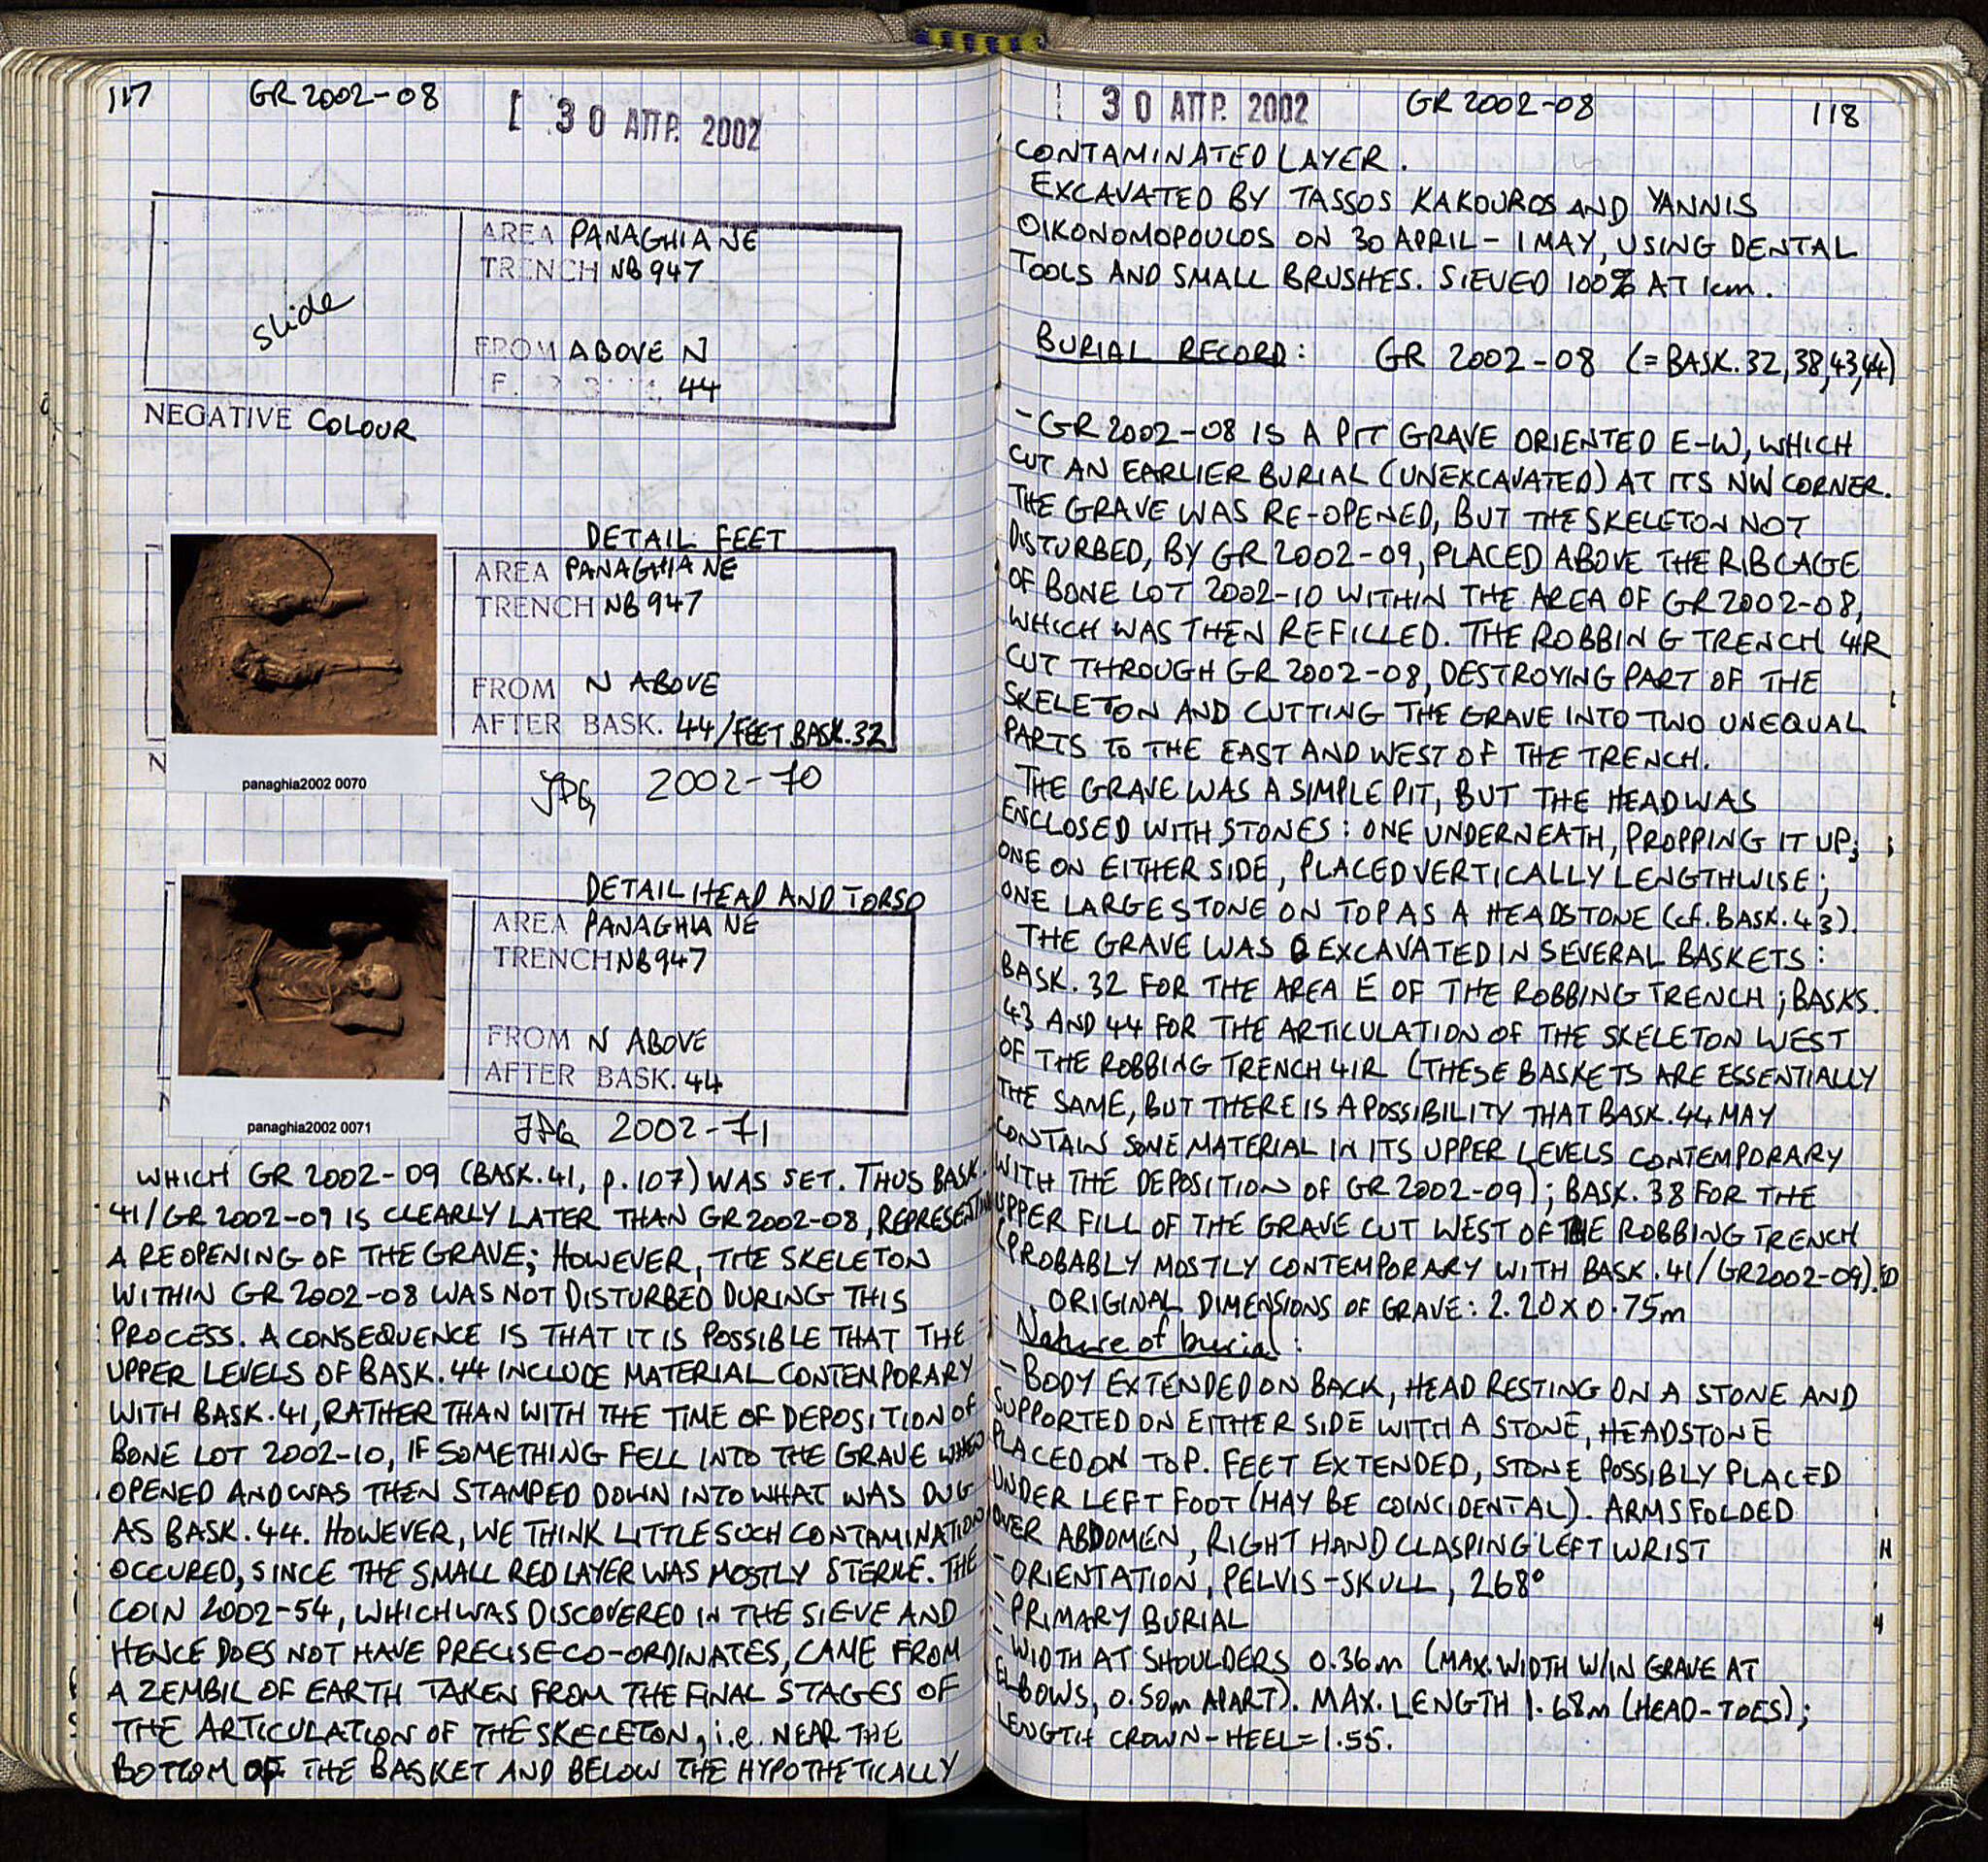 117 GR 2002-08
30 ΑΠΡ. 2002
AREA PANAGHIA NE
TRENCH NB 947
slide
FROM ABOVE N
44
NEGATIVE COLOUR
DETAIL FEET
AREA PANAGHIA NE
TRENCH NB 947
FROM N ABOVE
AFTER BASK. 44/FEET BASK.32
N
panaghia2002 0070
JPG 2002-70
DETAIL HEAD AND TORSO
AREA PANAGHIA NE
TRENCH NB947
FROM N ABOVE
AFTER BASK. 44
panaghia2002 0071
JPG 2002-71
WHICH GR 2002-09 (BASK.41, p.107) WAS SET. THUS BASK.
41/GR 2002-09 IS CLEARLY LATER THAN GR 2002-08, REPRESENTING
A REOPENING OF THE GRAVE; HOWEVER, THE SKELETON
WITHIN GR 2002-08 WAS NOT DISTURBED DURING THIS
PROCESS. A CONSEQUENCE IS THAT IT IS POSSIBLE THAT THE
UPPER LEVELS OF BASK.44 INCLUDE MATERIAL CONTEMPORARY
WITH BASK.41, RATHER THAN WITH THE TIME OF DEPOSITION OF
BONE LOT 2002-10, IF SOMETHING FELL INTO THE GRAVE WHEN
OPENED AND WAS THEN STAMPED DOWN INTO WHAT WAS DUG
AS BASK.44. HOWEVER, WE THINK LITTLE SUCH CONTAMINATION
OCCURED, SINCE THE SMALL RED LAYER WAS MOSTLY STERILE. THE
COIN 2002-54, WHICH WAS DISCOVERED IN THE SIEVE AND
HENCE DOES NOT HAVE PRECISE CO-ORDINATES, CAME FROM
A ZEMBIL OF EARTH TAKEN FROM THE FINAL STAGES OF
THE ARTICULATION OF THE SKELETON, i.e. NEAR THE
BOTTOM OF THE BASKET AND BELOW THE HYPOTHETICALLY
30 ΑΠΡ. 2002 GR 2002-08 118
CONTAMINATED LAYER.
EXCAVATED BY TASSOS KAKOUROS AND YANNIS
OIKONOMOPOULOS ON 30 APRIL - 1 MAY, USING DENTAL
TOOLS AND SMALL BRUSHES. SIEVED 100% AT 1cm.
BURIAL RECORD: GR 2002-08 (=BASK.32,38,43,44)
- GR 2002-08 IS A PIT GRAVE ORIENTED E-W, WHICH
CUT AN EARLIER BURIAL (UNEXCAVATED) AT ITS NW CORNER.
THE GRAVE WAS RE-OPENED, BUT THE SKELETON NOT
DISTURBED, BY GR 2002-09, PLACED ABOVE THE RIBCAGE
OF BONE LOT 2002-10 WITHIN THE AREA OF GR 2002-08,
WHICH WAS THEN REFILLED. THE ROBBING TRENCH 41R
CUT THROUGH GR 2002-08, DESTROYING PART OF THE
SKELETON AND CUTTING THE GRAVE INTO TWO UNEQUAL
PARTS TO THE EAST AND WEST OF THE TRENCH.
THE GRAVE WAS A SIMPLE PIT, BUT THE HEAD WAS
ENCLOSED WITH STONES: ONE UNDERNEATH, PROPPING IT UP;
ONE ON EITHER SIDE, PLACED VERTICALLY LENGTHWISE;
ONE LARGE STONE ON TOP AS A HEADSTONE (cf. BASK.43).
THE GRAVE WAS EXCAVATED IN SEVERAL BASKETS:
BASK. 32 FOR THE AREA E OF THE ROBBING TRENCH; BASKS.
43 AND 44 FOR THE ARTICULATION OF THE SKELETON WEST
OF THE ROBBING TRENCH 41R (THESE BASKETS ARE ESSENTIALLY
THE SAME, BUT THERE IS A POSSIBILITY THAT BASK.44 MAY
CONTAIN SOME MATERIAL IN ITS UPPER LEVELS CONTEMPORARY
WITH THE DEPOSITION OF GR 2002-09); BASK. 38 FOR THE
UPPER FILL OF THE GRAVE CUT WEST OF THE ROBBING TRENCH
(PROBABLY MOSTLY CONTEMPORARY WITH BASK.41/GR2002-09).
ORIGINAL DIMENSIONS OF GRAVE: 2.20 X 0.75m
Nature of burial:
- BODY EXTENDED ON BACK, HEAD RESTING ON A STONE AND
SUPPORTED ON EITHER SIDE WITH A STONE, HEADSTONE
PLACED ON TOP. FEET EXTENDED, STONE POSSIBLY PLACED
UNDER LEFT FOOT (MAY BE COINCIDENTAL). ARMS FOLDED
OVER ABDOMEN, RIGHT HAND CLASPING LEFT WRIST
- ORIENTATION, PELVIS-SKULL, 268°
- PRIMARY BURIAL
- WIDTH AT SHOULDERS 0.36m (MAX. WIDTH W/IN GRAVE AT
ELBOWS, 0.50m APART). MAX. LENGTH 1.68m (HEAD-TOES);
LENGTH CROWN-HEEL=1.55.